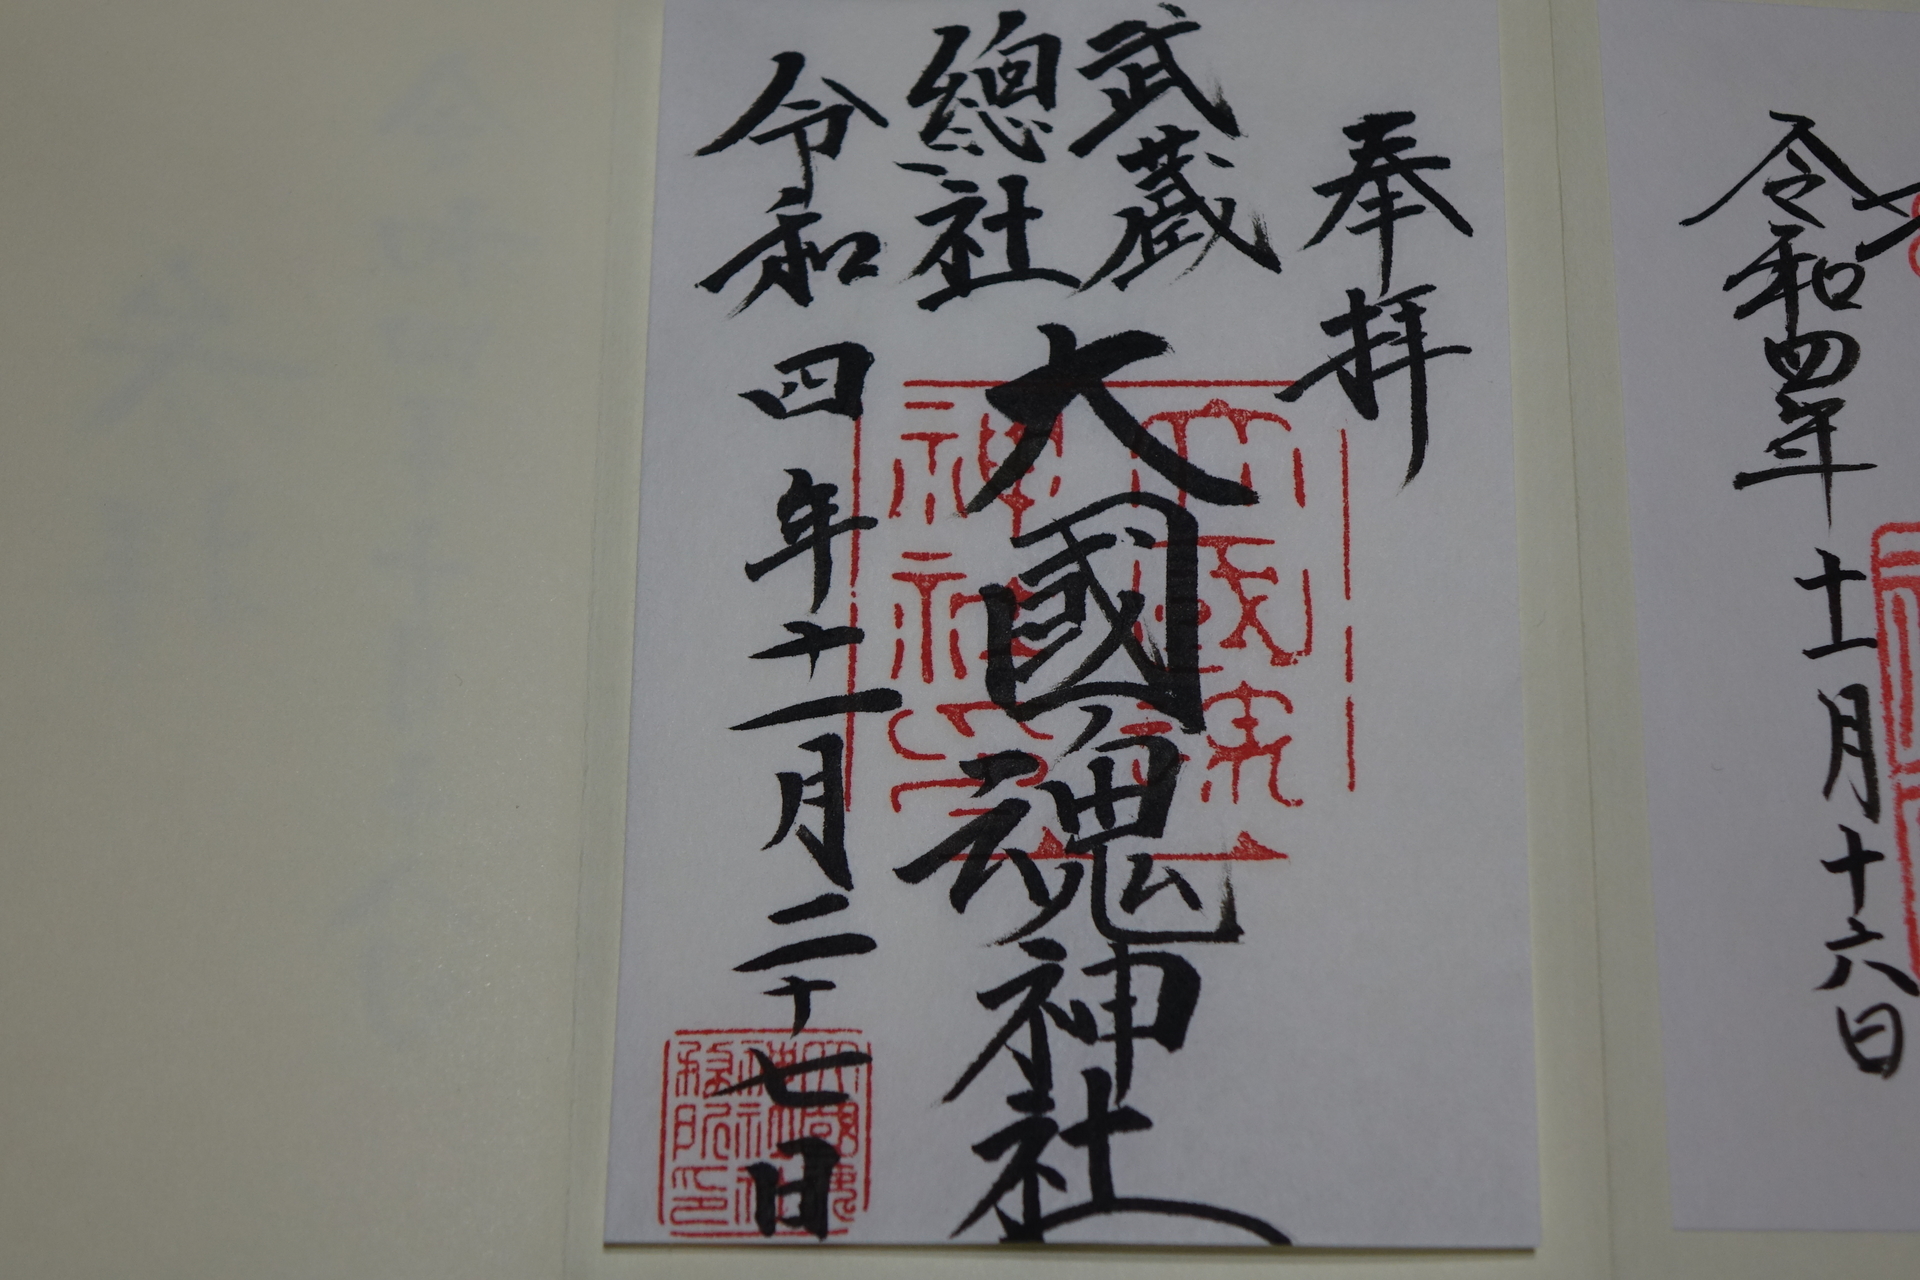 令和四年十一月十六日
奉拝
武蔵
總社
大國魂神社
令和四年十一月二十七日